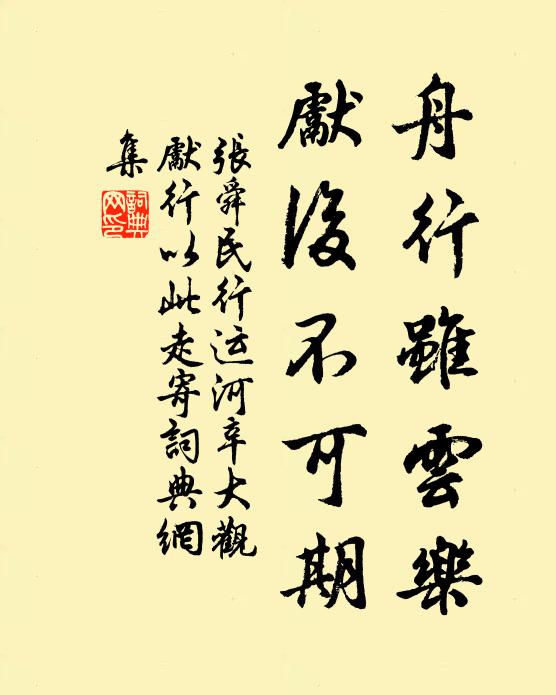 舟行雖雲樂
獻後不可期
張舜民行运河辛大觀
獻行以此走寄詞典網
集
詞典
网印